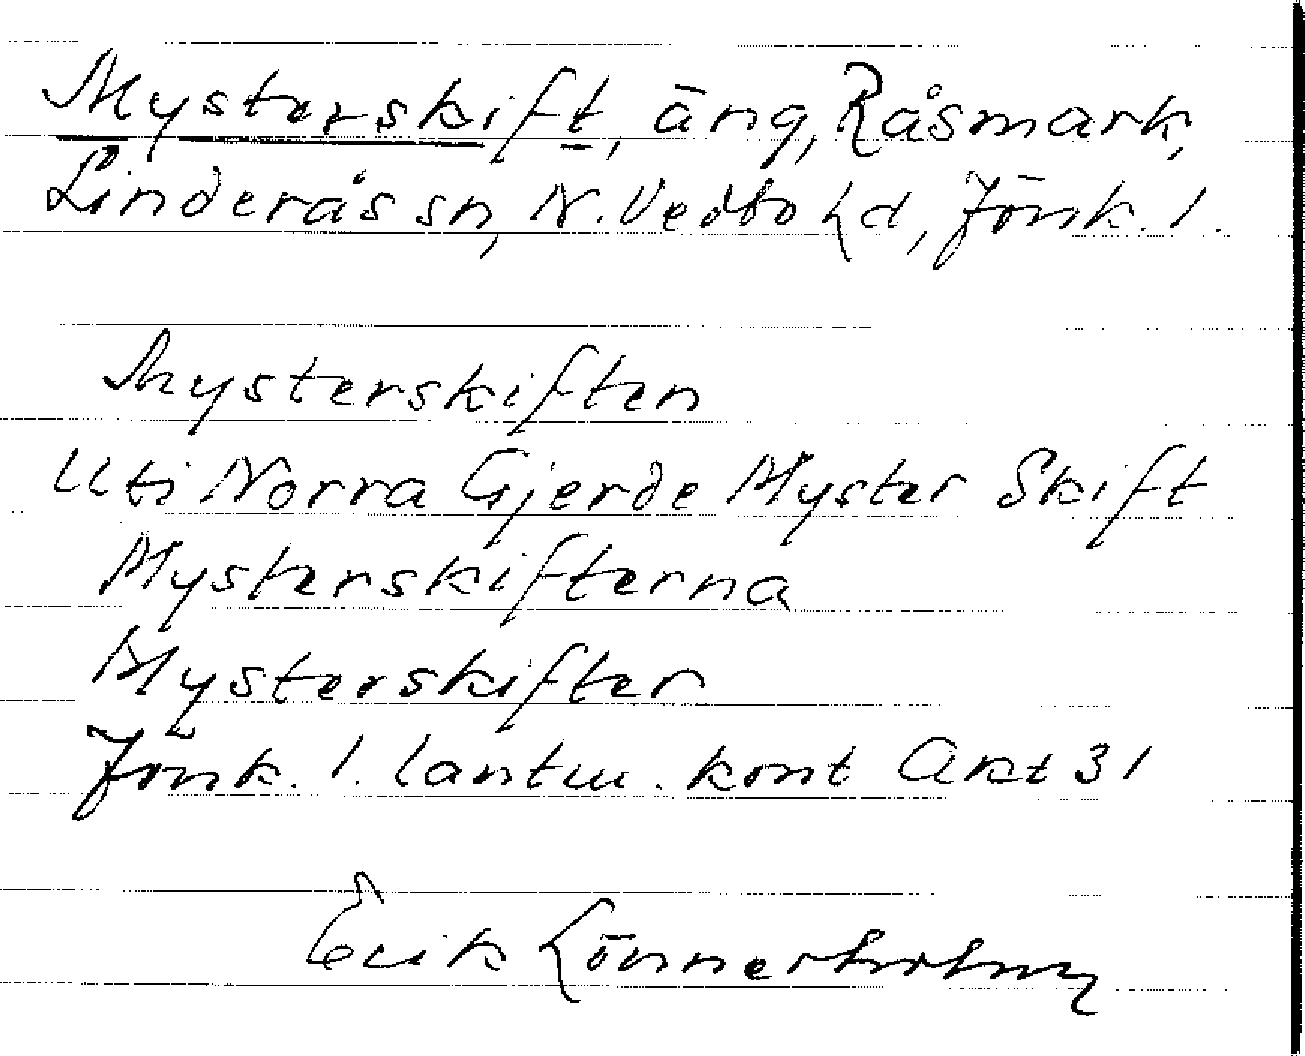 Mysterskift, äng, Råsmark,
Linderås sn, N. Vedbo hd, Jönk. l.
Mysterskiften
Uti Norra Gjerde Myster Skift
Mysterskifterna
Mysterskifter
Jönk. l. lantm. kont Akt 31
Erik Lönnerholm